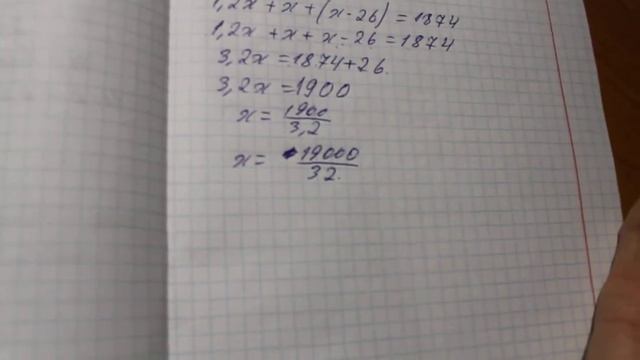 1,2x + x + (x - 26) = 1874
1,2x + x + x - 26 = 1874
3,2x = 1874 + 26
3,2x = 1900
x = 1900/3,2
x = 19000/32.